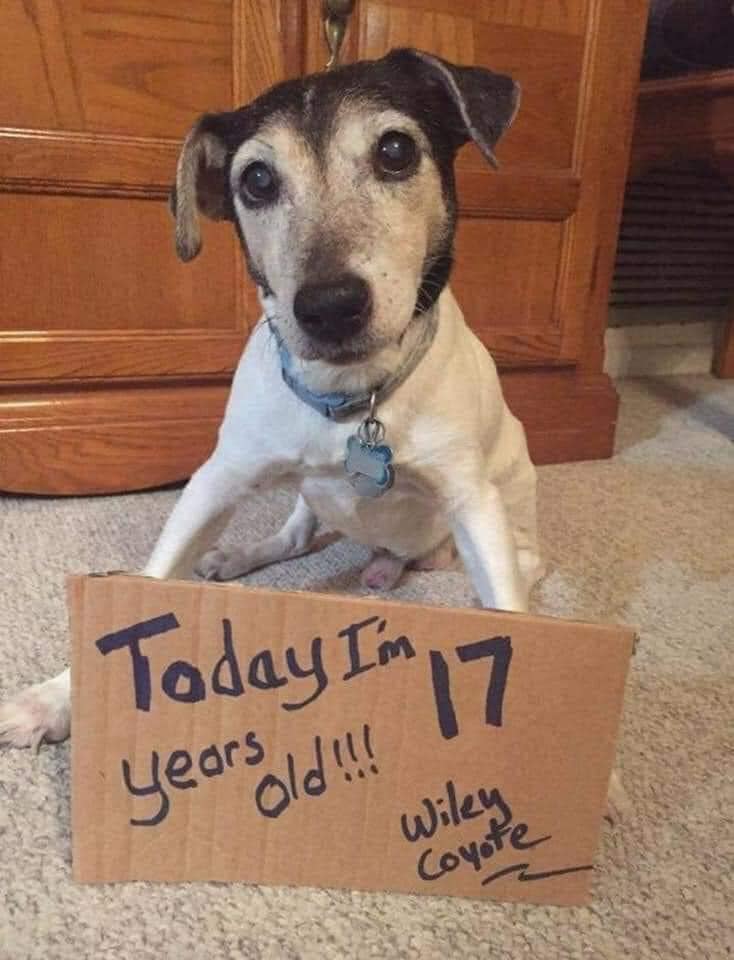 Today I'm 17
years old!!!
Wiley
Coyote